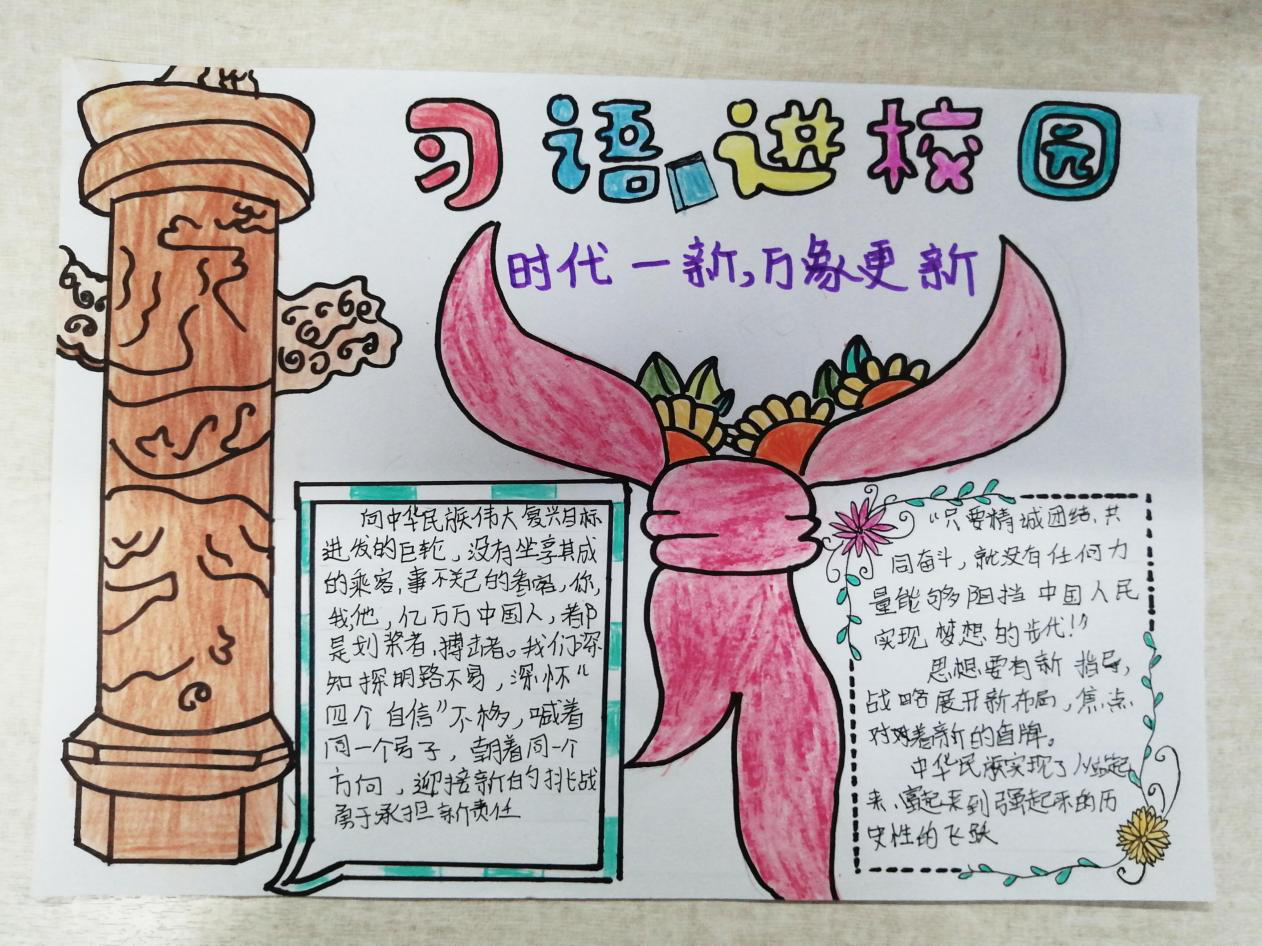 习语进校园
时代一新,万象更新
向中华民族伟大复兴目标
进发的巨轮，没有坐享其成
的乘客,事不关己的看客,你,
我他，亿万万中国人，都
是划桨者,搏击者。我们深
知探明路不易，深怀“
四个自信”不移，喊着
同一个号子，朝着同一个
方向，迎接新的挑战
勇于承担新责任
“只要精诚团结,共
同奋斗，就没有任何力
量能够阻挡中国人民
实现梦想的步伐!”
思想要有新指导,
战略展开新布局,焦点
对着新的目牌。
中华民族实现了从站起
来、富起来到强起来的历
史性的飞跃